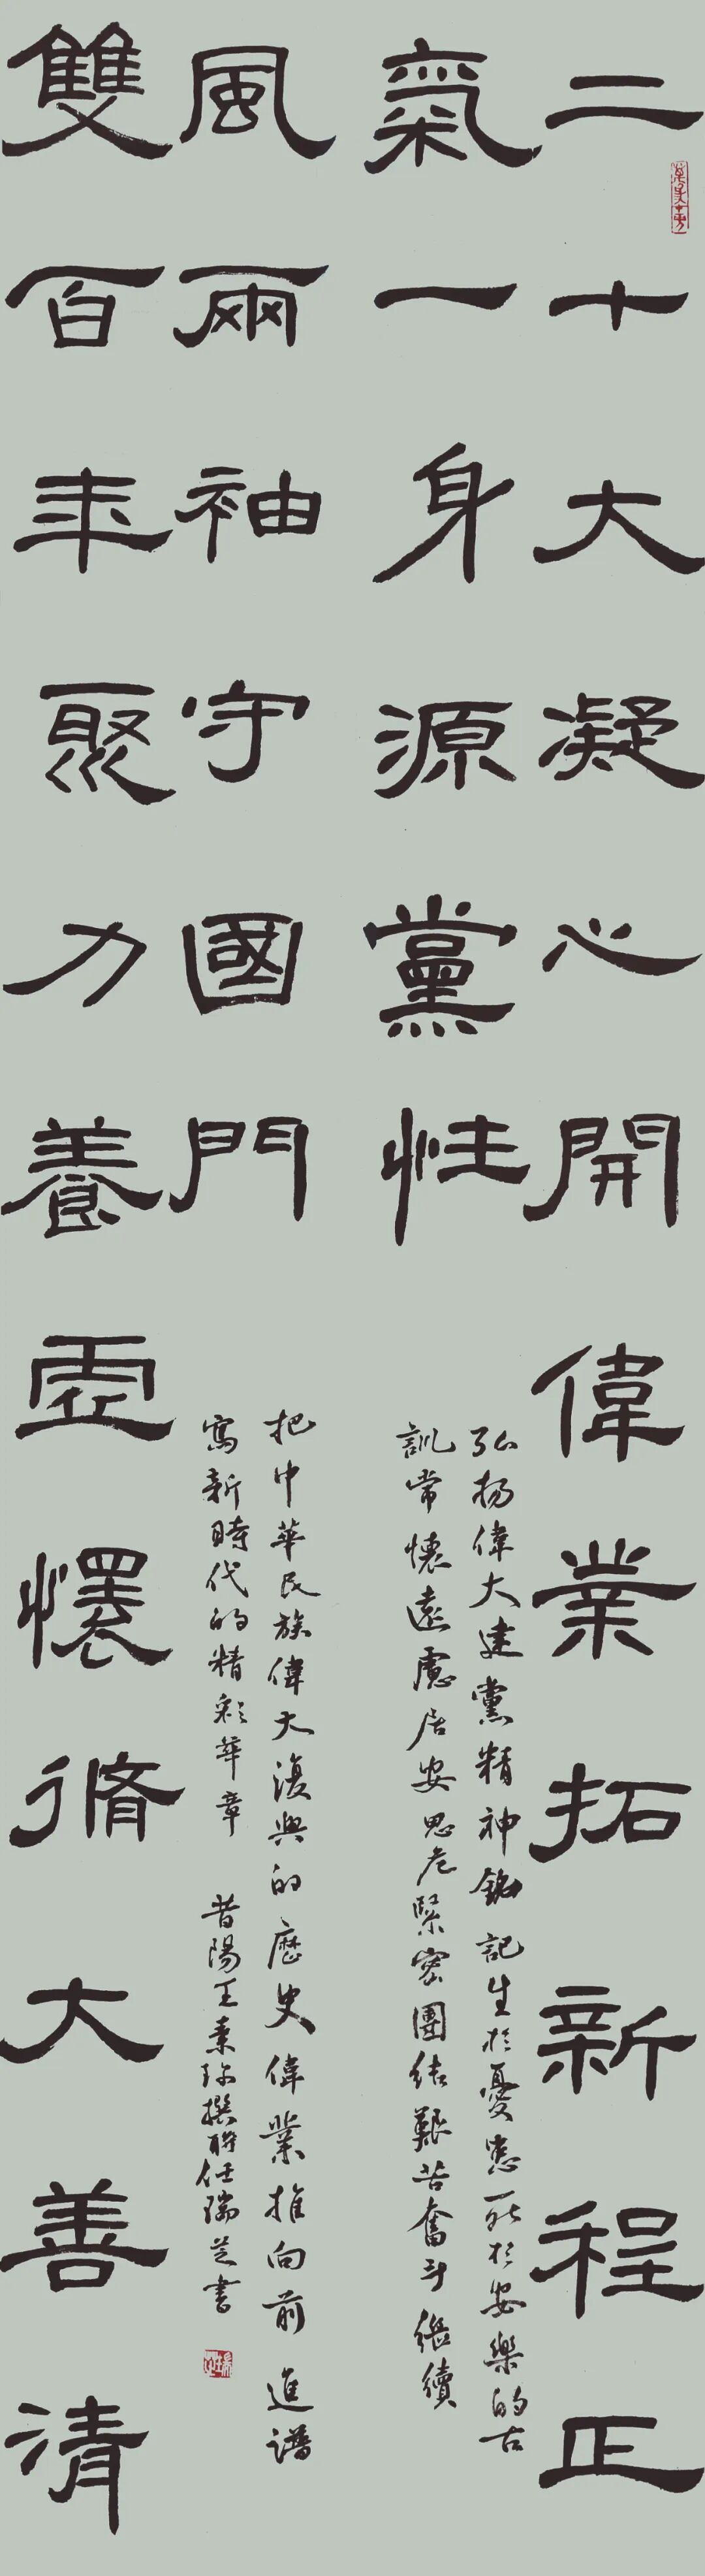 二十大凝心開偉業拓新程正
氣一身源黨性
雙百年聚力養虛懷脩大善清
風兩袖守國門
弘扬偉大建黨精神銘記生於憂患死於安樂的古
訓常懷遠慮居安思危緊密團結艱苦奮斗繼續
把中華民族偉大復興的歷史偉業推向前進譜
寫新時代的精彩華章 昔陽王素珍撰聯任瑞芝書